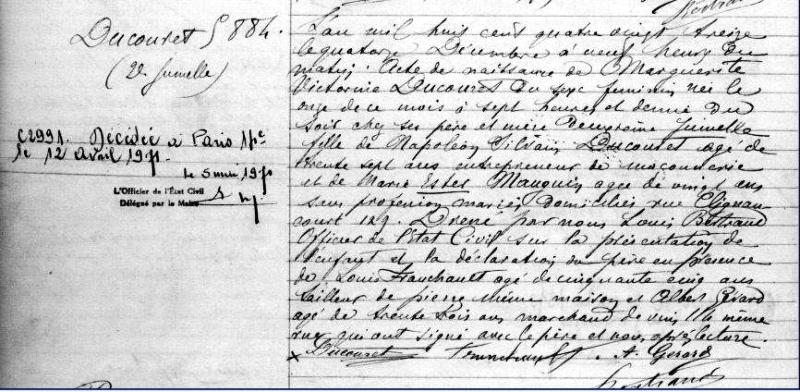 Ducouret 5884.
(2e Jumelle)
C2991. Décédée à Paris 14e
le 12 avril 1971.
le 5 mai 1970
L'Officier de l'État Civil
Délégué par le Maire
L'an mil huit cent quatre vingt treize
le quatorze Décembre à neuf heures du
matin. Acte de naissance de Marguerite
Victorine Ducouret du sexe féminin née le
onze de ce mois à sept heures et demie du
soir chez ses père et mère Deuxième Jumelle
fille de Napoléon Silvain Ducouret agé de
trente sept ans entrepreneur de maçonnerie
et de Marie Ester Mauguin agée de vingt ans
sans profession mariés Domiciliés rue Clignan
court 129. Dressé par nous Louis Bertrand
Officier de l'État Civil sur la présentation de
l'enfant et la déclaration du père en présence
de Louis Franchault agé de cinquante cinq ans
tailleur de pierre même maison et Albert Gérard
agé de trente trois ans marchand de vins 114 même
rue qui ont signé avec le père et nous après lecture.
Ducouret A. Gerard
Bertrand